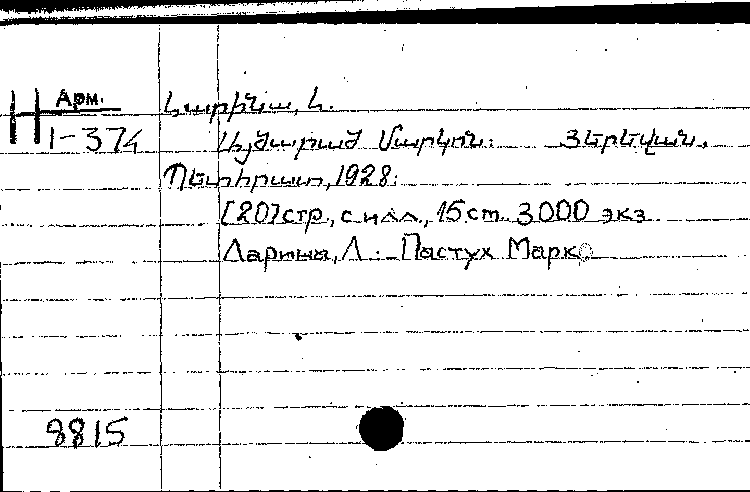 Арм.
Н 1-374
Լարինա, Լ.
Այծարած Մարկոն: Յերեվան,
Պետհրատ, 1928:
[20] стр, с илл, 15 см 3000 экз
Ларина, Л. Пастух Марко
8815